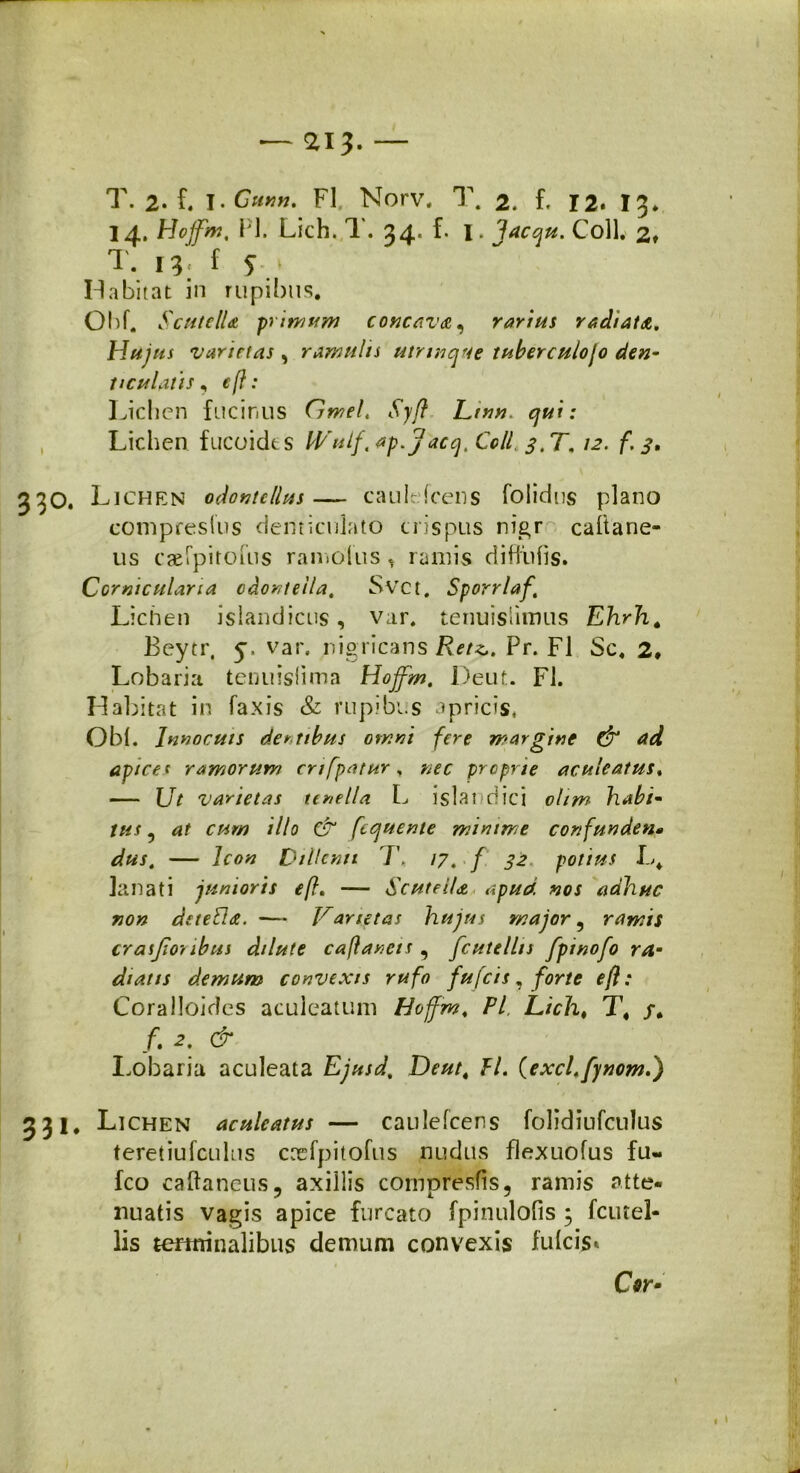 — 213. —
T. 2. f. 1. Gunn. Fl. Norv. T. 2. f. 12. 13.
14. Hoffm. Pl. Lich. T. 34. f. 1. Jacqu. Coll. 2,
T. 13. f 5.
Habitat in rupibus.
Obſ. Scutellæ primum concavæ, rarius radiatæ.
Hujus varietas, ramulis utrinque tuberculoſo den-
ticulatis, eſt:
Lichen fucinus Gmel. Syſt Linn. qui:
Lichen fucoides Wulf. ap. Jacq. Coll. 3. T. 12. f. 3.
330. LICHEN odontellus — cauleſcens ſolidus plano
compresſus denticulato crispus nigro caſtane-
us cæſpitoſus ramoſus, ramis diffuſis.
Cornicularia odontella. Svet. Sporrlaf.
Lichen islandicus, var. tenuisſimus Ehrh.
Beytr. 5. var. nigricans Retz. Pr. Fl Sc. 2.
Lobaria tenuisſima Hoffm. Deut. Fl.
Habitat in ſaxis & rupibus apricis.
Obſ. Innocuis dentibus omni fere margine & ad
apices ramorum criſpatur, nec proprie aculeatus.
— Ut varietas tenella L islandici olim habi-
tus, at cum illo & ſequente minime confunden-
dus. — Icon Dillenii T. 17. f 32. potius L.
lanati junioris eſt. — Scutellæ apud nos adhuc
non detectæ. — Varietas hujus major, ramis
crasſioribus dilute caſtaneis, ſcutellis ſpinoſo ra-
diatis demum convexis rufo fuſcis, forte eſt:
Coralloides aculeatum Hoffm. Pl. Lich. T. 5.
f. 2. &
Lobaria aculeata Ejusd. Deut. Fl. (excl. ſynom.)
331. LICHEN aculeatus — cauleſcens ſolidiuſculus
teretiuſculus cæſpitoſus nudus flexuoſus fu-
ſco caſtaneus, axillis compresſis, ramis atte-
nuatis vagis apice furcato ſpinuloſis; ſcutel-
lis terminalibus demum convexis fuſcis.
Cor-